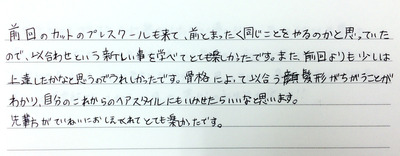 前回のカットのプレスクールも来て、前とまったく同じことをやるのかと思っていた
ので、似合わせという新しい事を学べてとても楽しかったです。また、前回よりも少しは
上達したかなと思うのでうれしかったです。骨格によって似合う顔髪形がちがうことが
わかり、自分のこれからのヘアスタイルにもいかせたらいいなと思います。
先輩方がていねいにおしえてくれてとても楽しかったです。